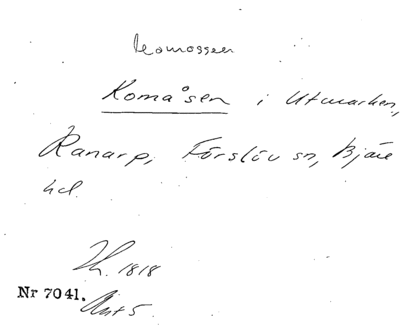 Komossen
Komåsen i Utmarken,
Ranarp, Förslöv sn, Bjäre
hd.
Lh. 1818
Nr 7041. Akt 5.